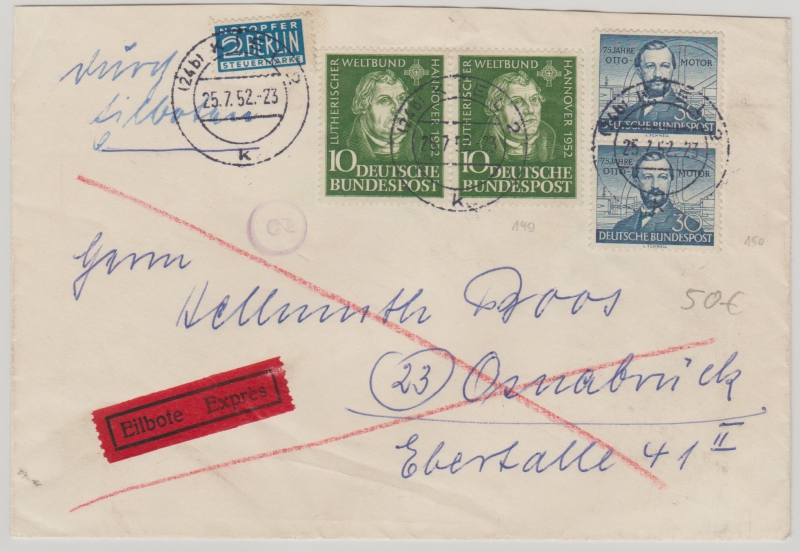 NOTOPFER
2 BERLIN
STEUERMARKE
durch
Eilboten
(24b)
25.7.52.-23
K
LUTHERISCHER WELTBUND HANNOVER 1952
10 DEUTSCHE
BUNDESPOST
LUTHERISCHER WELTBUND HANNOVER 1952
10 DEUTSCHE
BUNDESPOST
K
75 JAHRE
OTTO MOTOR
30
DEUTSCHE BUNDESPOST
25.7.52.-23
75 JAHRE
OTTO MOTOR
30
DEUTSCHE BUNDESPOST
149
150
50€
Herrn
Hellmuth Boos
(23) Osnabrück
Ebertallee 41 II
Eilbote Exprès